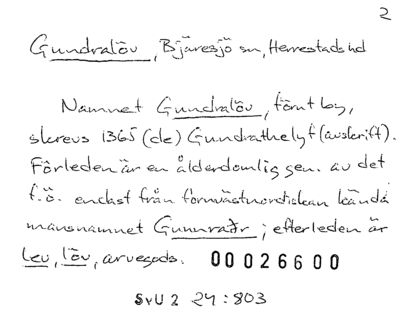 2
Gundralöv, Bjäresjö sn, Herrestads hd
Namnet Gundralöv, förnt by,
skrevs 1365 (de) Gundrathelyf (avskrift).
Förleden är en ålderdomlig gen. av det
f.ö. endast från fornvästnordiskan kända
mansnamnet Gunnraðr; efterleden är
lev, löv, arvegods. 00026600
SvU 2 24:803